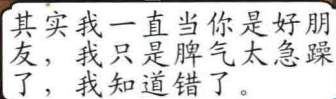 其实我一直当你是好朋
友，我只是脾气太急躁
了，我知道错了。